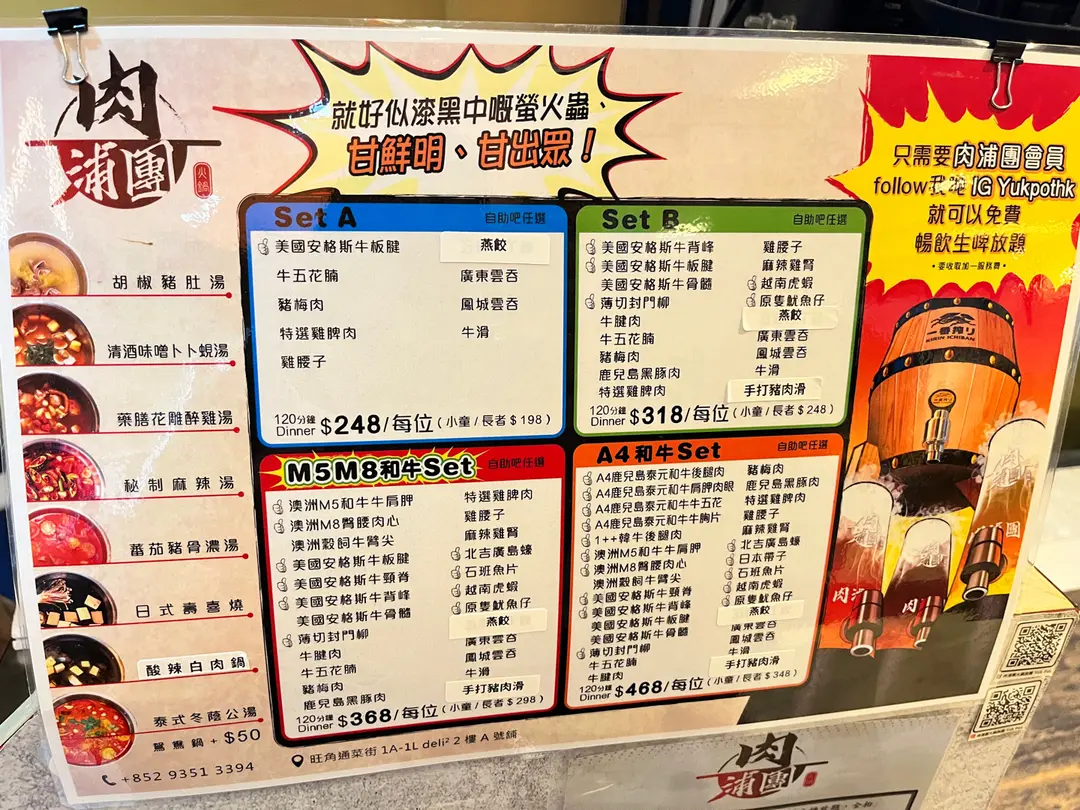 肉
浦團
火鍋
就好似漆黑中嘅螢火蟲、
甘鮮明、甘出眾！
只需要肉浦團會員
follow我哋 IG Yukpothk
就可以免費
暢飲生啤放題
•要收取加一服務費•
一番搾り
KIRIN ICHIBAN
胡椒豬肚湯
清酒味噌卜卜蜆湯
藥膳花雕醉雞湯
秘制麻辣湯
蕃茄豬骨濃湯
日式壽喜燒
酸辣白肉鍋
泰式冬蔭公湯
鴛鴦鍋 + $50
Set A 自助吧任選
美國安格斯牛板腱
牛五花腩
豬梅肉
特選雞脾肉
雞腰子
燕餃
廣東雲吞
鳳城雲吞
牛滑
120分鐘
Dinner $248/每位 (小童 / 長者 $ 198)
Set B 自助吧任選
美國安格斯牛背峰
美國安格斯牛板腱
美國安格斯牛骨髓
薄切封門柳
牛腱肉
牛五花腩
豬梅肉
鹿兒島黑豚肉
特選雞脾肉
雞腰子
麻辣雞腎
越南虎蝦
原隻魷魚仔
燕餃
廣東雲吞
鳳城雲吞
牛滑
手打豬肉滑
120分鐘
Dinner $318/每位 (小童 / 長者 $ 248)
M5M8和牛Set 自助吧任選
澳洲M5和牛牛肩胛
澳洲M8臀腰肉心
澳洲穀飼牛臂尖
美國安格斯牛板腱
美國安格斯牛頸脊
美國安格斯牛背峰
美國安格斯牛骨髓
薄切封門柳
牛腱肉
牛五花腩
豬梅肉
鹿兒島黑豚肉
特選雞脾肉
雞腰子
麻辣雞腎
北吉廣島蠔
石班魚片
越南虎蝦
原隻魷魚仔
燕餃
廣東雲吞
鳳城雲吞
牛滑
手打豬肉滑
120分鐘
Dinner $368/每位 (小童 / 長者 $ 298)
A4和牛Set 自助吧任選
A4鹿兒島泰元和牛後腿肉
A4鹿兒島泰元和牛肩胛肉眼
A4鹿兒島泰元和牛牛五花
A4鹿兒島泰元和牛牛胸片
1++韓牛後腿肉
澳洲M5和牛牛肩胛
澳洲M8臀腰肉心
澳洲穀飼牛臂尖
美國安格斯牛頸脊
美國安格斯牛背峰
美國安格斯牛板腱
美國安格斯牛骨髓
薄切封門柳
牛五花腩
牛腱肉
豬梅肉
鹿兒島黑豚肉
特選雞脾肉
雞腰子
麻辣雞腎
北吉廣島蠔
日本帶子
石班魚片
越南虎蝦
原隻魷魚仔
燕餃
廣東雲吞
鳳城雲吞
牛滑
手打豬肉滑
120分鐘
Dinner $468/每位 (小童 / 長者 $ 348)
+852 9351 3394
旺角通菜街 1A-1L deli² 2 樓 A 號舖
肉
浦團